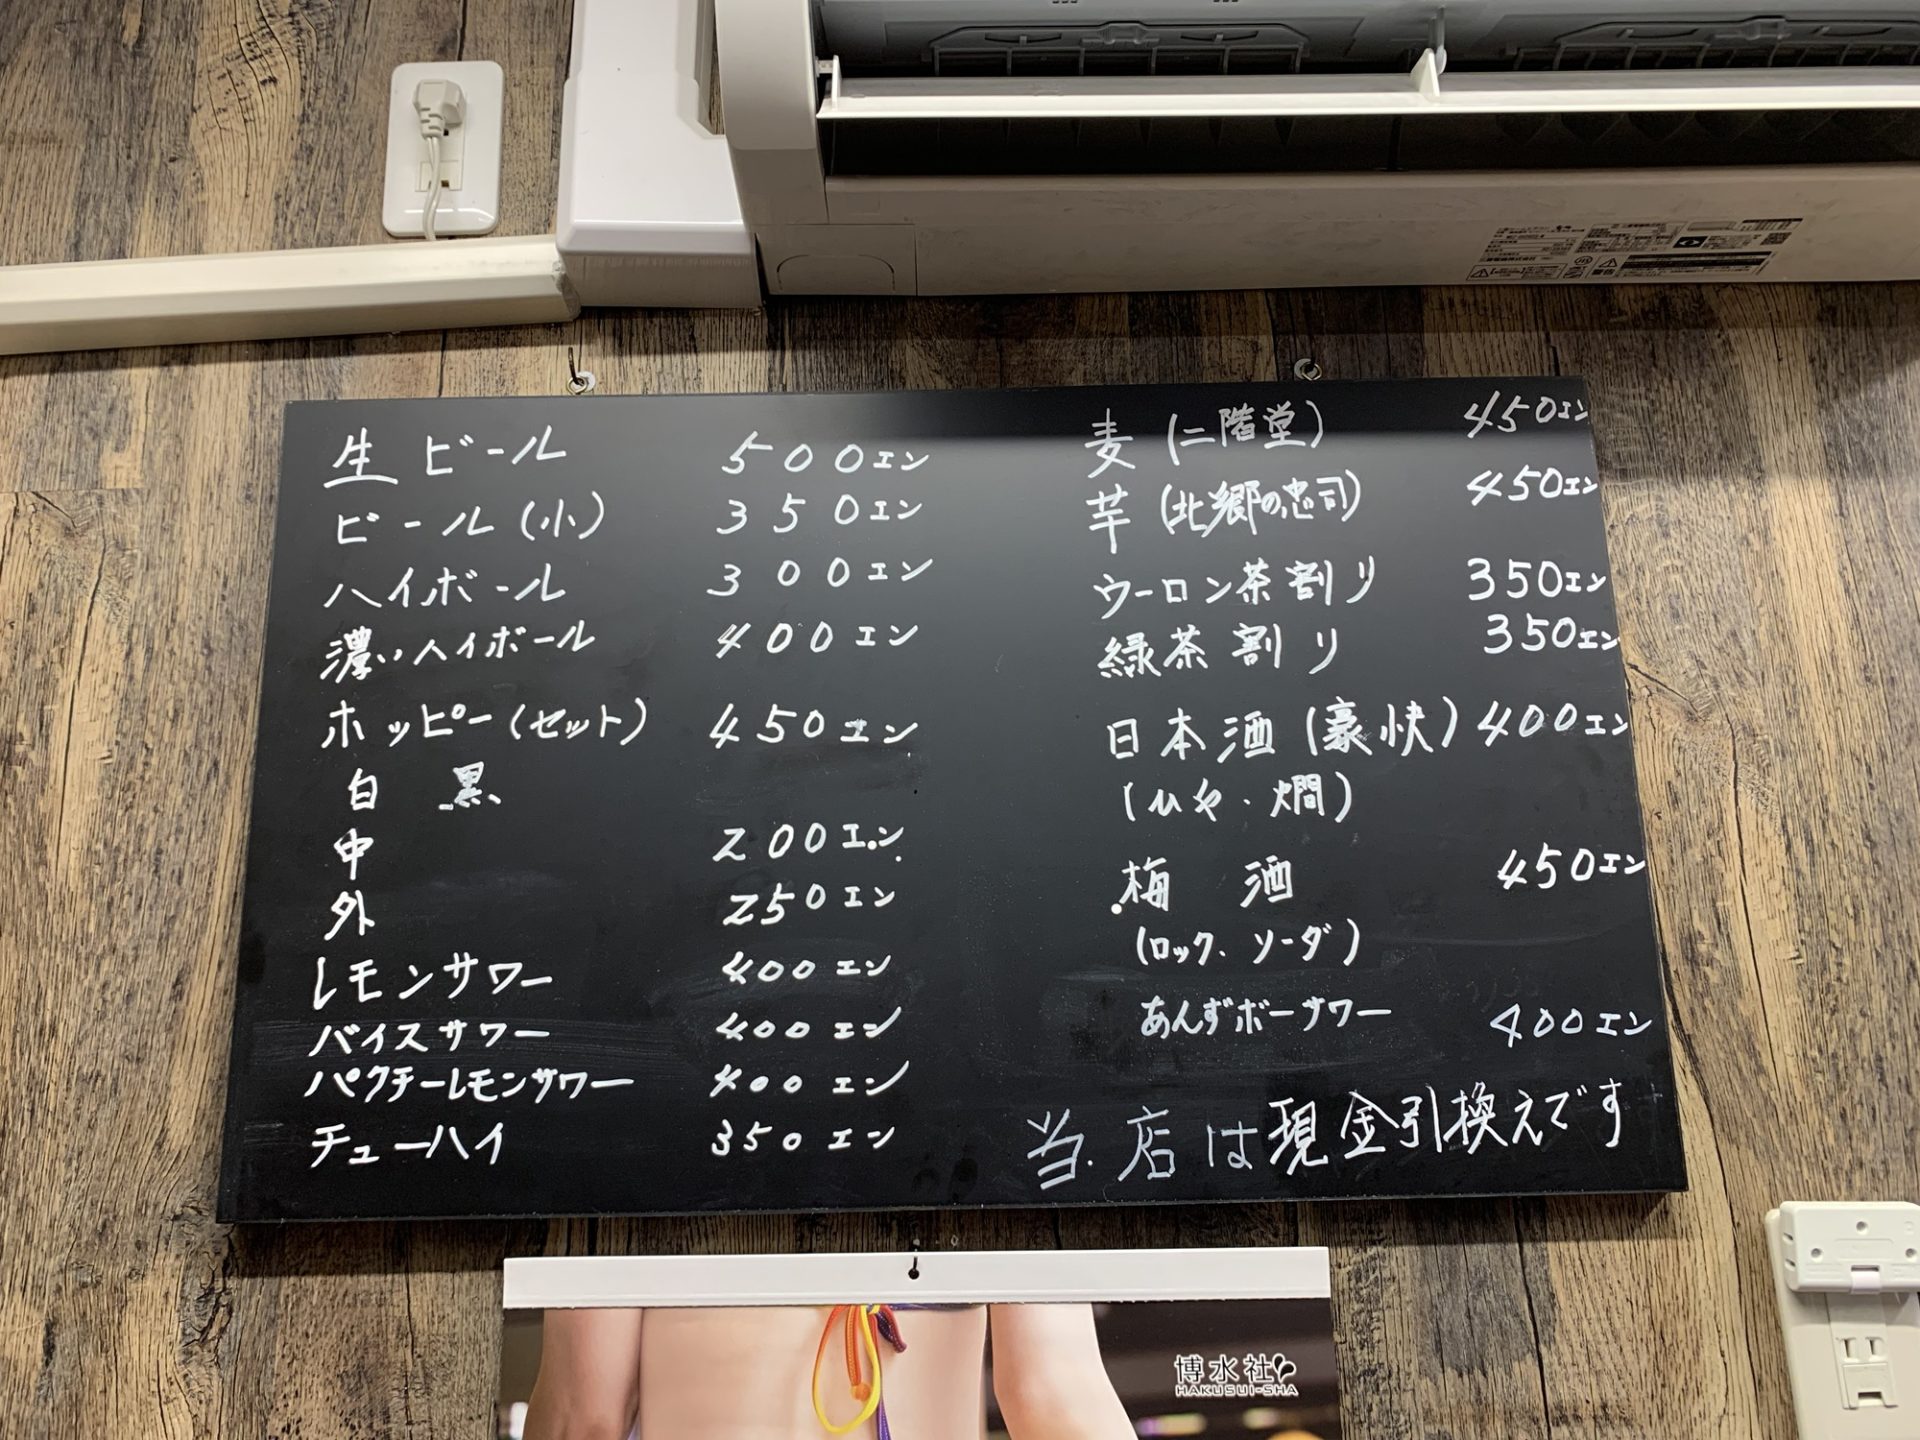 生ビール 500エン
ビール(小) 350エン
ハイボール 300エン
濃いハイボール 400エン
ホッピー(セット) 450エン
白 黒
中 200エン
外 250エン
レモンサワー 400エン
バイスサワー 400エン
パクチーレモンサワー 400エン
チューハイ 350エン
麦(二階堂) 450エン
芋(北郷の忠司) 450エン
ウーロン茶割り 350エン
緑茶割り 350エン
日本酒(豪快) 400エン
(ひや・燗)
梅酒 450エン
(ロック、ソーダ)
あんずボーサワー 400エン
当店は現金引換えです
博水社
HAKUSUI-SHA